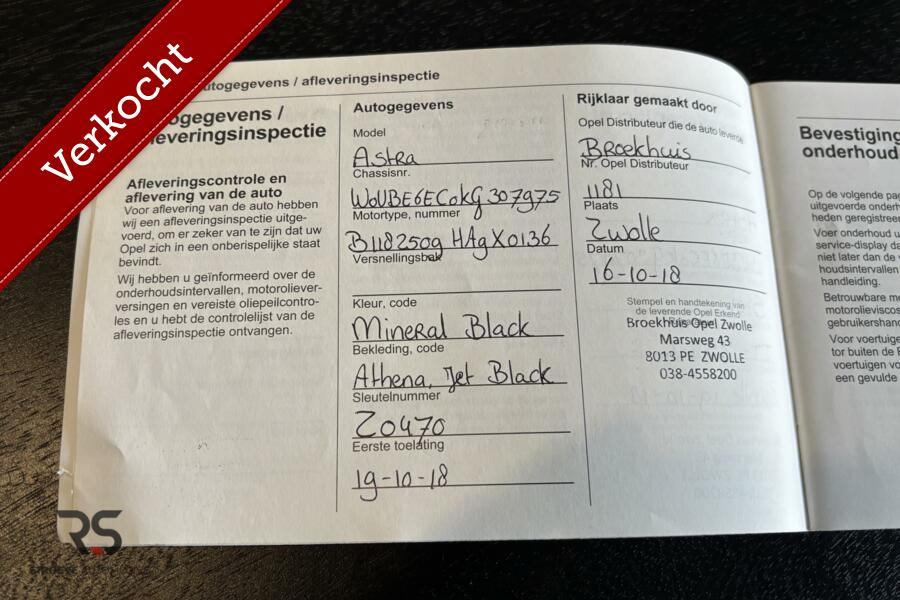 Verkocht
utogegevens / afleveringsinspectie
ogegevens /
leveringsinspectie
Afleveringscontrole en
aflevering van de auto
Voor aflevering van de auto hebben
wij een afleveringsinspectie uitge-
voerd, om er zeker van te zijn dat uw
Opel zich in een onberispelijke staat
bevindt.
Wij hebben u geïnformeerd over de
onderhoudsintervallen, motoroliever-
versingen en vereiste oliepeilcontro-
les en u hebt de controlelijst van de
afleveringsinspectie ontvangen.
Autogegevens
Model
Astra
Chassisnr.
W0VBE6EC0KG307975
Motortype, nummer
B118250g HAgX0136
Versnellingsbak
Kleur, code
Mineral Black
Bekleding, code
Athena, Jet Black
Sleutelnummer
Z0470
Eerste toelating
19-10-18
Rijklaar gemaakt door
Opel Distributeur die de auto leverde
Broekhuis
Nr. Opel Distributeur
1181
Plaats
Zwolle
Datum
16-10-18
Stempel en handtekening van
de leverende Opel Erkend
Broekhuis Opel Zwolle
Marsweg 43
8013 PE ZWOLLE
038-4558200
Bevestiging
onderhoud
Op de volgende pag
uitgevoerde onderh
heden geregistreer
Voer onderhoud u
service-display da
niet later dan de
houdsintervallen
handleiding.
Betrouwbare m
motorolieviscos
gebruikershand
Voor voertuige
tor buiten de E
voertuigen vo
een gevulde
RS